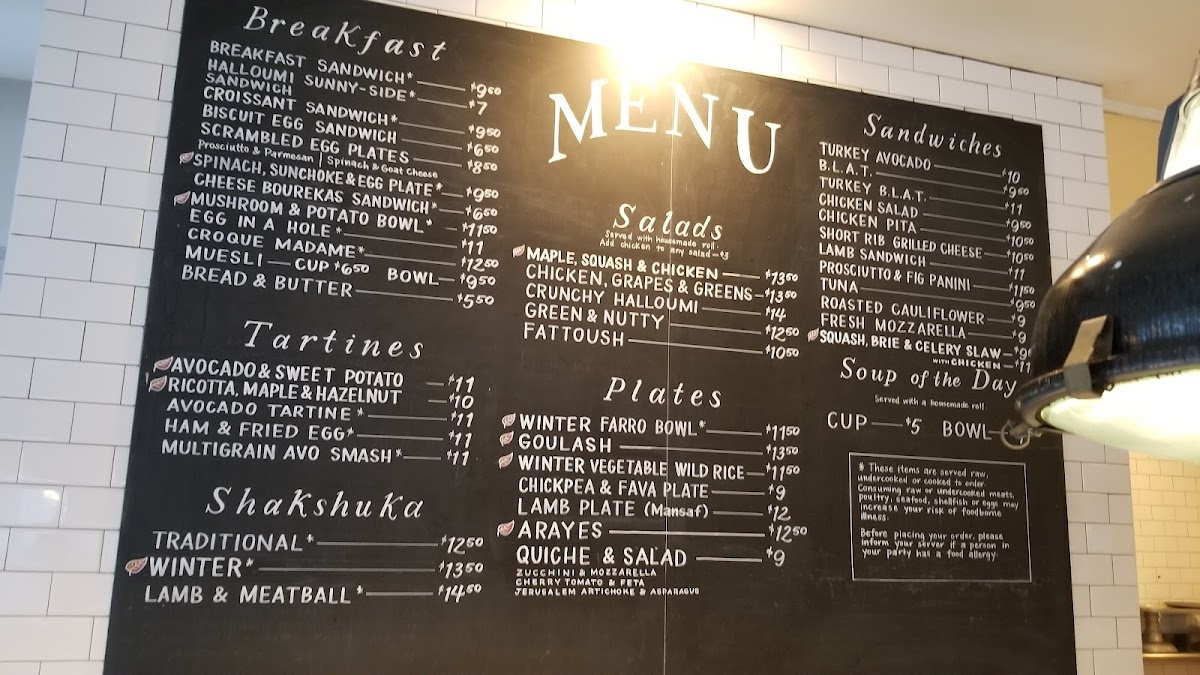 Breakfast
BREAKFAST SANDWICH* $9⁵⁰
HALLOUMI SUNNY-SIDE*
SANDWICH $7
CROISSANT SANDWICH* $9⁵⁰
BISCUIT EGG SANDWICH $6⁵⁰
SCRAMBLED EGG PLATES $8⁵⁰
Prosciutto & Parmesan | Spinach & Goat Cheese
SPINACH, SUNCHOKE & EGG PLATE* $9⁵⁰
CHEESE BOUREKAS SANDWICH* $6⁵⁰
MUSHROOM & POTATO BOWL* $11⁵⁰
EGG IN A HOLE* $11
CROQUE MADAME* $12⁵⁰
MUESLI — CUP $6⁵⁰ BOWL $9⁵⁰
BREAD & BUTTER $5⁵⁰
Tartines
AVOCADO & SWEET POTATO $11
RICOTTA, MAPLE & HAZELNUT $10
AVOCADO TARTINE* $11
HAM & FRIED EGG* $11
MULTIGRAIN AVO SMASH* $11
Shakshuka
TRADITIONAL* $12⁵⁰
WINTER* $13⁵⁰
LAMB & MEATBALL* $14⁵⁰
MENU
Salads
Served with homemade roll.
Add chicken to any salad — $3
MAPLE, SQUASH & CHICKEN $13⁵⁰
CHICKEN, GRAPES & GREENS $13⁵⁰
CRUNCHY HALLOUMI $14
GREEN & NUTTY $12⁵⁰
FATTOUSH $10⁵⁰
Plates
WINTER FARRO BOWL* $11⁵⁰
GOULASH $13⁵⁰
WINTER VEGETABLE WILD RICE $11⁵⁰
CHICKPEA & FAVA PLATE $9
LAMB PLATE (Mansaf) $12
ARAYES $12⁵⁰
QUICHE & SALAD $9
ZUCCHINI & MOZZARELLA
CHERRY TOMATO & FETA
JERUSALEM ARTICHOKE & ASPARAGUS
Sandwiches
TURKEY AVOCADO $10
B.L.A.T. $9⁵⁰
TURKEY B.L.A.T. $11
CHICKEN SALAD $9⁵⁰
CHICKEN PITA $10⁵⁰
SHORT RIB GRILLED CHEESE $10⁵⁰
LAMB SANDWICH $11
PROSCIUTTO & FIG PANINI $11⁵⁰
TUNA $9⁵⁰
ROASTED CAULIFLOWER $9
FRESH MOZZARELLA $9
SQUASH, BRIE & CELERY SLAW $9
WITH CHICKEN $11
Soup of the Day
Served with a homemade roll
CUP $5 BOWL
* These items are served raw,
undercooked or cooked to order.
Consuming raw or undercooked meats,
poultry, seafood, shellfish or eggs may
increase your risk of foodborne
illness.
Before placing your order, please
inform your server if a person in
your party has a food allergy.